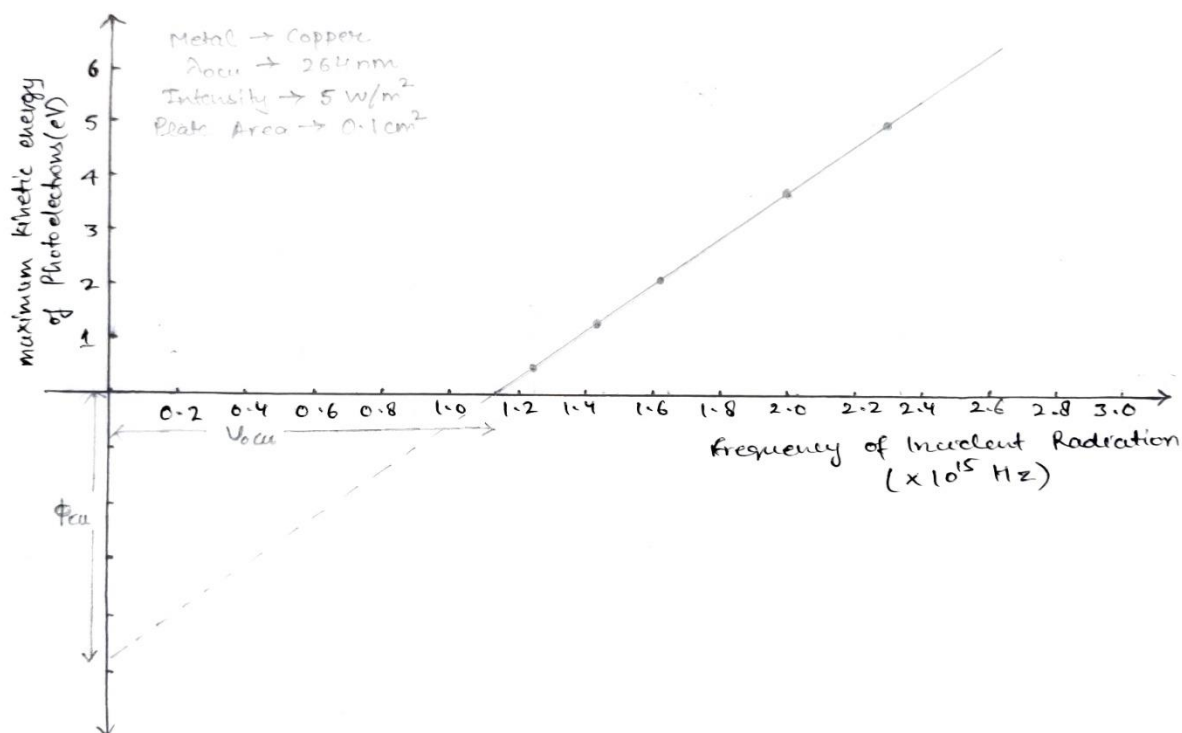 Metal → Copper
λocu → 264nm
Intensity → 5 W/m²
Plate Area → 0.1cm²
maximum kinetic energy
of Photoelectrons(eV)
6
5
4
3
2
1
0.2 0.4 0.6 0.8 1.0 1.2 1.4 1.6 1.8 2.0 2.2 2.4 2.6 2.8 3.0
νocu
Frequency of Incident Radiation
(×10¹⁵ Hz)
ϕcu